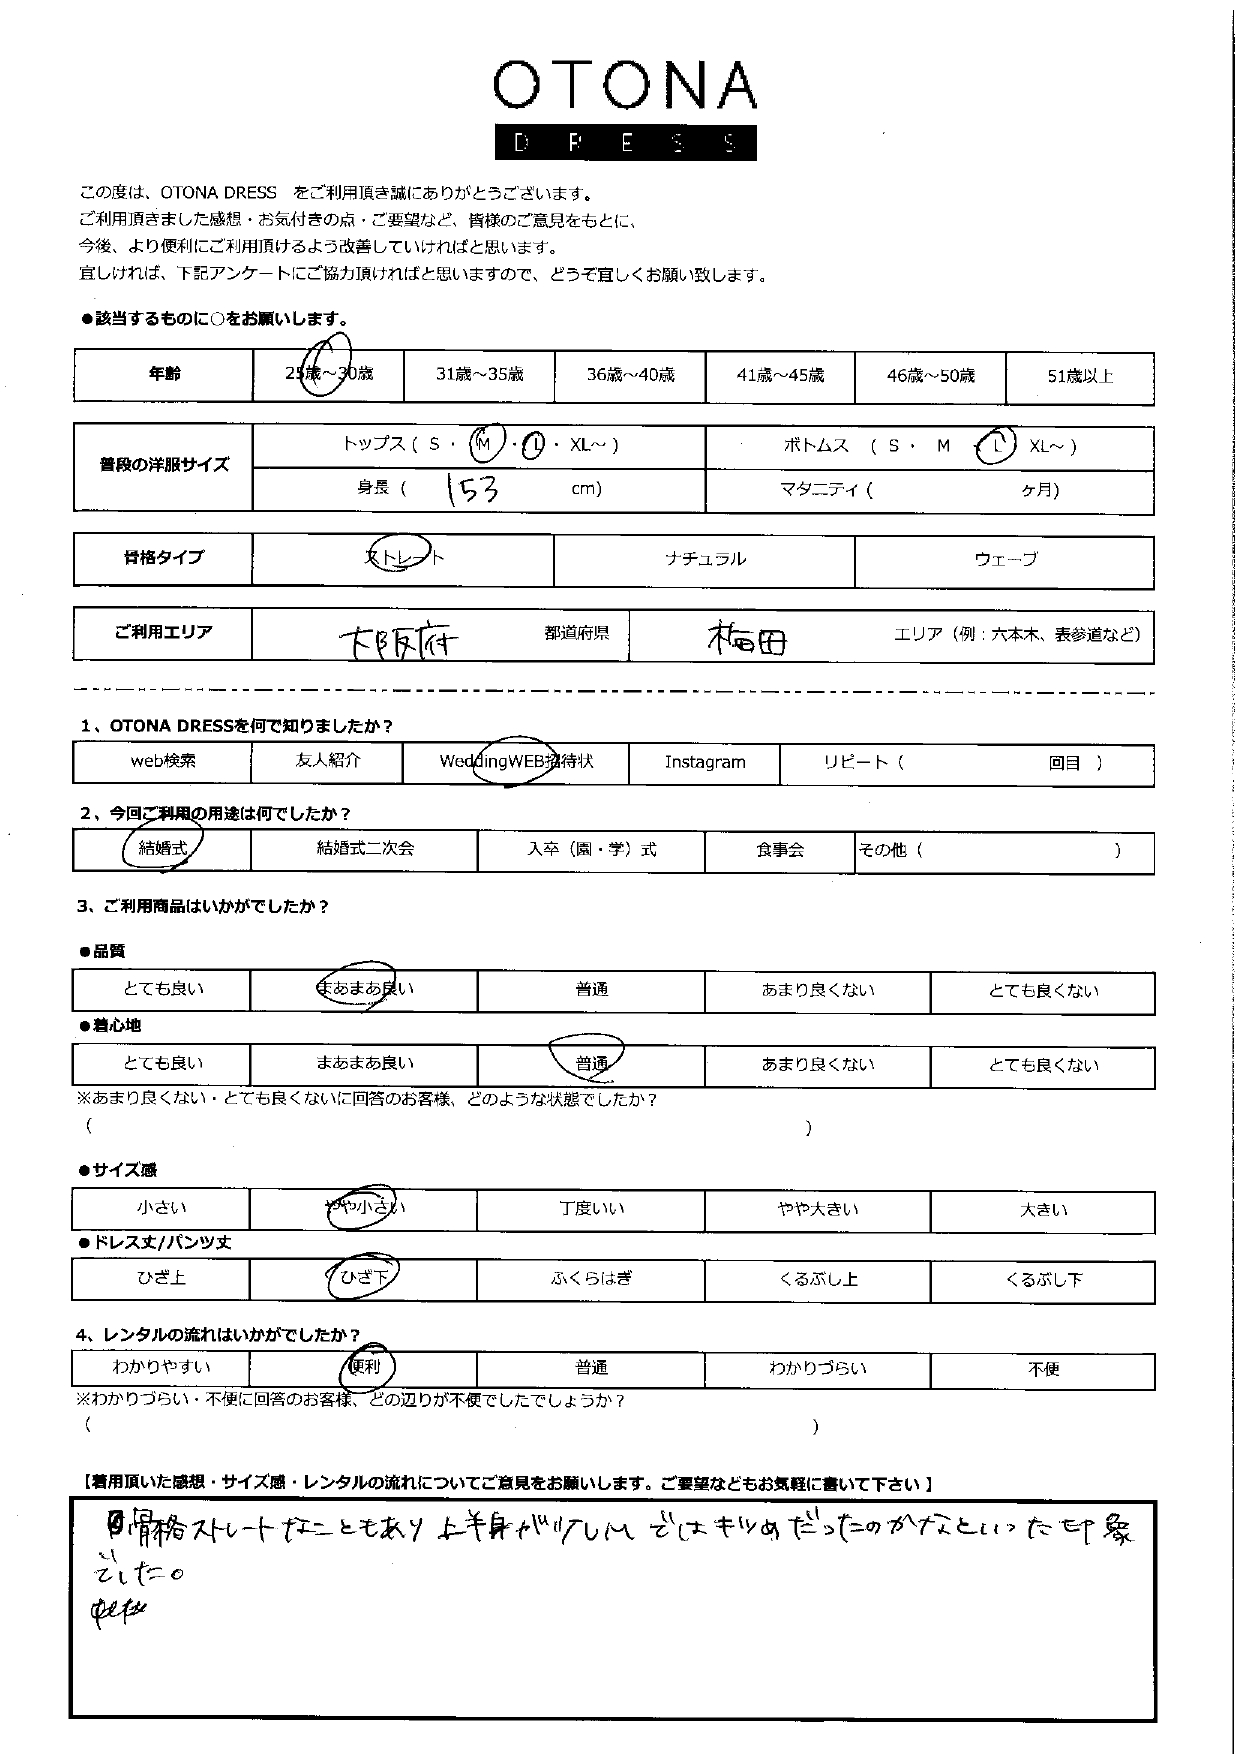 OTONA
DRESS
この度は、OTONA DRESS をご利用頂き誠にありがとうございます。
ご利用頂きました感想・お気付きの点・ご要望など、皆様のご意見をもとに、
今後、より便利にご利用頂けるよう改善していければと思います。
宜しければ、下記アンケートにご協力頂ければと思いますので、どうぞ宜しくお願い致します。
●該当するものに○をお願いします。
年齢 25歳～30歳 31歳～35歳 36歳～40歳 41歳～45歳 46歳～50歳 51歳以上
普段の洋服サイズ トップス ( S ・ M ・ L ・ XL～ ) ボトムス ( S ・ M ・ L XL～ )
身長 ( 153 cm) マタニティ ( ヶ月)
骨格タイプ ストレート ナチュラル ウェーブ
ご利用エリア 大阪府 都道府県 梅田 エリア（例：六本木、表参道など）
1、OTONA DRESSを何で知りましたか？
web検索 友人紹介 WeddingWEB招待状 Instagram リピート（ 回目 ）
2、今回ご利用の用途は何でしたか？
結婚式 結婚式二次会 入卒（園・学）式 食事会 その他（ ）
3、ご利用商品はいかがでしたか？
●品質
とても良い まあまあ良い 普通 あまり良くない とても良くない
●着心地
とても良い まあまあ良い 普通 あまり良くない とても良くない
※あまり良くない・とても良くないに回答のお客様、どのような状態でしたか？
（ ）
●サイズ感
小さい やや小さい 丁度いい やや大きい 大きい
●ドレス丈/パンツ丈
ひざ上 ひざ下 ふくらはぎ くるぶし上 くるぶし下
4、レンタルの流れはいかがでしたか？
わかりやすい 便利 普通 わかりづらい 不便
※わかりづらい・不便に回答のお客様、どの辺りが不便でしたでしょうか？
（ ）
【着用頂いた感想・サイズ感・レンタルの流れについてご意見をお願いします。ご要望などもお気軽に書いて下さい 】
骨格ストレートなこともあり 上半身が少しMではキツめだったのかなといった印象
でした。